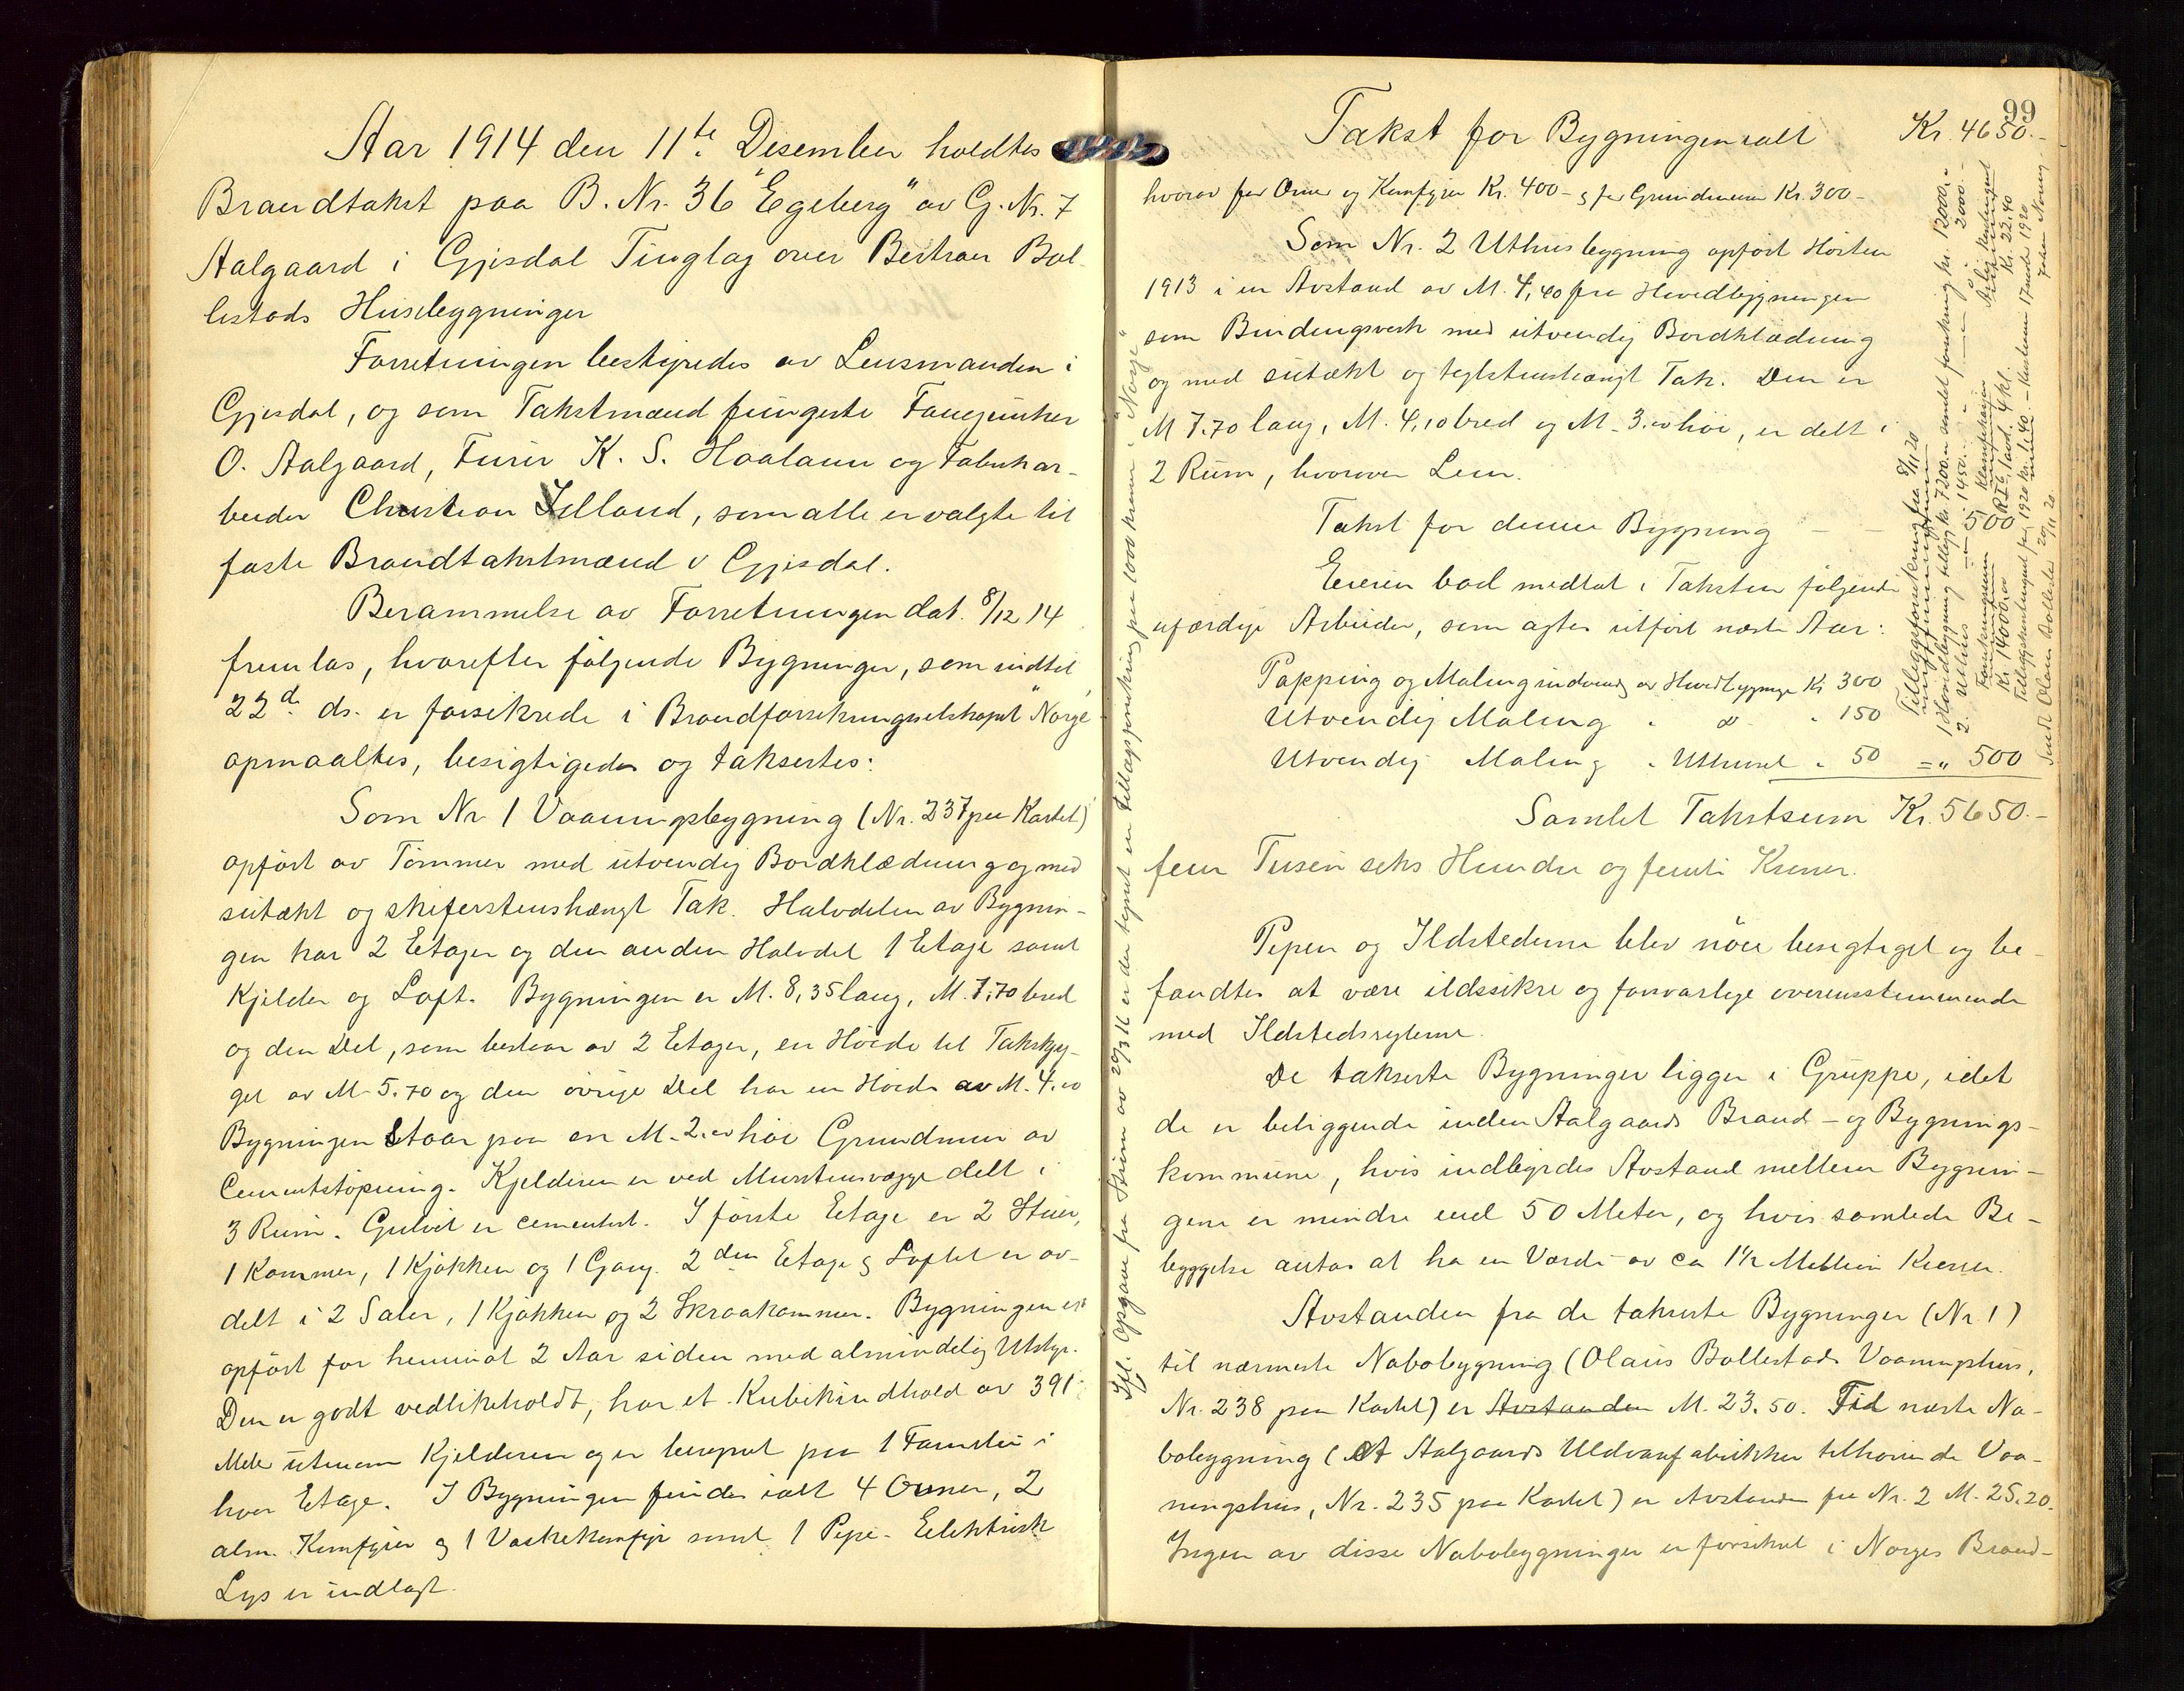 Aar 1914 den 11te Desember holdtes
Brandtakst paa B. Nr. 36 "Egeberg" av G. Nr. 7
Aalgaard i Gjesdal Tinglag over Bertran Bol-
lestads Husebygninger
Forretningen bestyredes av Lensmanden i
Gjesdal, og som Takstmænd fungerte Fanejunker
O. Aalgaard, Furer K. S. Haaland og Fabrikar-
beider Christian Jelland, som alle er valgte til
faste Brandtakstmænd i Gjesdal.
Berammelse av Forretningen dat. 8/12 14
fremlas, hvorefter følgende Bygninger, som indtil
22de ds. er forsikrede i Brandforsikringsselskapet "Norge"
opmaaltes, besigtigedes og taksertes:
Som Nr 1 Vaaningsbygning (Nr. 237 paa Kartet)
opført av Tømmer med utvendig Bordklædning og med
sutækt og skiferstenshængt Tak. Halvdelen av Bygnin-
gen har 2 Etager og den anden Halvdel 1 Etage samt
Kjelder og Loft. Bygningen er M. 8,35 lang, M. 7,70 bred
og den Del, som bestaar av 2 Etager, en Høide til Takskjæ-
get av M 5.70 og den øvrige Del har en Høide av M. 4.00
Bygningen staar paa en M. 2.00 høi Grundmur av
Cementstøpning. Kjelderen er ved Murstensvægge delt i
3 Rum. Gulvet er cementert. I første Etage er 2 Stuer,
1 Kammer, 1 Kjøkken og 1 Gang. 2den Etage og Loftet er av-
delt i 2 Saler, 1 Kjøkken og 2 Skraakammer. Bygningen er
opført for henimot 2 Aar siden med almindelig Utstyr.
Den er godt vedlikeholdt, har et Kubikindhold av 391
Meter utenom Kjelderen og er beregnet paa 1 Familie i
hver Etage. I Bygningen findes ialt 4 Ovner, 2
alm. Komfyrer og 1 Vaskekomfyr samt 1 Pipe. Elektrisk
Lys er indlagt.
Ifl. Opgave fra Stiem av 29/3 16 er der tegnet en tillægsforsikring paa 1000 kroner i "Norge"
99
Takst for Bygningen ialt Kr. 4650.-
hvorav for Ovner og Komfyrer Kr. 400- og for Grundmuren Kr. 300-
Som Nr. 2 Uthusbygning opført Høsten
1913 i en Avstand av M. 4,40 fra Hovedbygningen
som Bindingsverk med utvendig Bordklædning
og med sutækt og teglstenshængt Tak. Den er
M 7.70 lang, M. 4,10 bred og M. 3.00 høi, er delt i
2 Rum, hvorover Lem.
Takst for denne Bygning - - " 500
Eieren bad medtat i Taksten følgende
ufærdige Arbeider, som agtes utført næste Aar:
Papping og Maling indvendig av Hovedbygninge Kr 300
Utvendig Maling " do " 150
Utvendig Maling " Uthuset " 50 = " 500
Samlet Takstsum Kr. 5650.-
fem Tusen seks Hundre og femti Kroner.
Pipen og Ildstederne blev nøie besigtiget og be-
fandtes at være ildssikre og forsvarlige overensstemmende
med Ildstedsreglerne.
De takserte Bygninger ligger i Gruppe, idet
de er beliggende inden Aalgaards Brand- og Bygnings-
kommune, hvis indbyrdes Avstand mellem Bygnin-
gene er mindre end 50 Meter, og hvis samlede Be-
byggelse antas at ha en Værdi av ca 1½ Million Kroner.
Avstanden fra de takserte Bygninger (Nr. 1)
til nærmeste Nabobygning (Olaus Bollestads Vaaningshus,
Nr. 238 paa Kartet) er Avstanden M. 23.50. Til næste Na-
bobygning (et Aalgaards Uldvarefabrikker tilhørende Vaa-
ningshus, Nr. 235 paa Kartet) er Avstanden fra Nr. 2 M. 25.20.
Ingen av disse Nabobygninger er forsikret i Norges Brand-
Tillægsforsikring fra 8/11 20
1 Hovedbygning tillægg kr. 7200.- samlet forsikring kr. 12000.-
2. Uthus " 1450.- " 2000.-
Forsikringssum Klassifikasjon Årlig kontingent
Kr 14000,00 RI G. land. 4 kl. Kr. 22.40
Tillægskontingent for 1920 kr. 1,40.
20/11 20